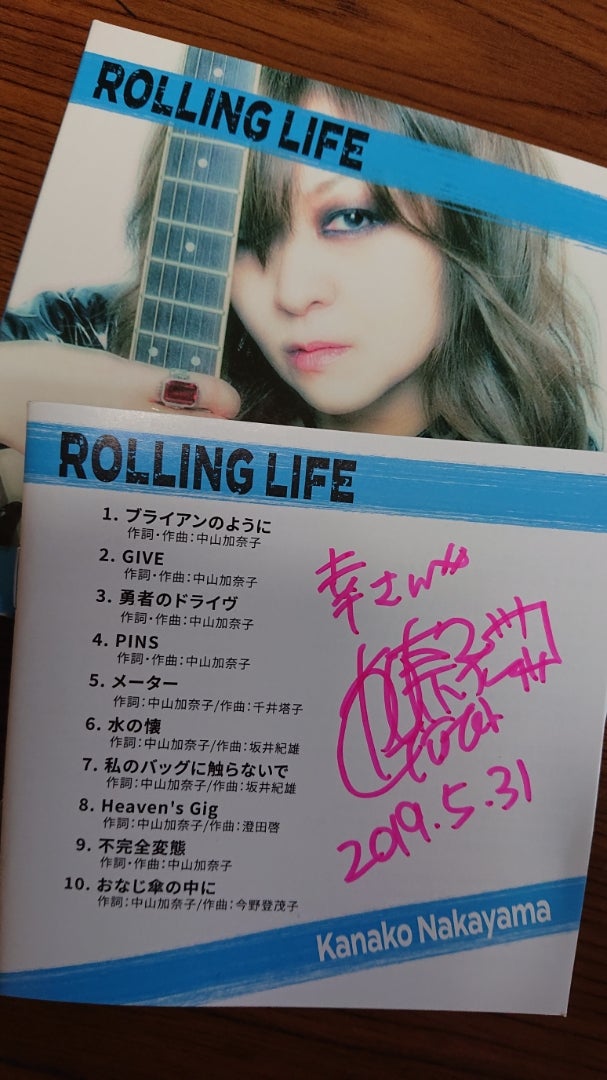 ROLLING LIFE
ROLLING LIFE
1. ブライアンのように
作詞・作曲：中山加奈子
2. GIVE
作詞・作曲：中山加奈子
3. 勇者のドライヴ
作詞・作曲：中山加奈子
4. PINS
作詞・作曲：中山加奈子
5. メーター
作詞：中山加奈子/作曲：千井塔子
6. 水の懐
作詞：中山加奈子/作曲：坂井紀雄
7. 私のバッグに触らないで
作詞：中山加奈子/作曲：坂井紀雄
8. Heaven's Gig
作詞：中山加奈子/作曲：澄田啓
9. 不完全変態
作詞・作曲：中山加奈子
10. おなじ傘の中に
作詞：中山加奈子/作曲：今野登茂子
幸さんへ
2019.5.31
Kanako Nakayama